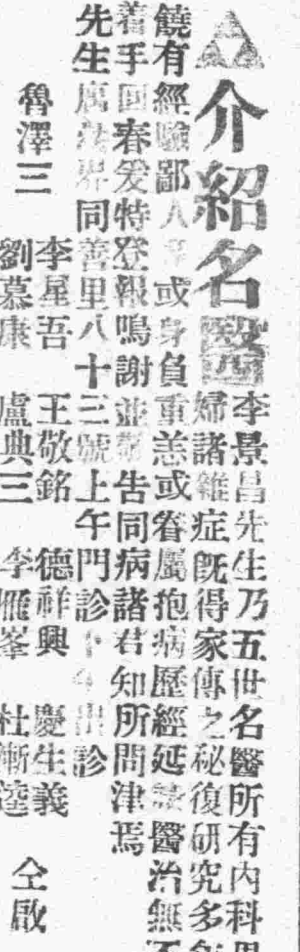 介紹名醫
李景昌先生乃五世名醫所有內科
婦諸雜症既得家傳之秘復研究多
饒有經驗鄙人等或身負重恙或眷屬抱病歷經延醫治無
着手回春爰特登報鳴謝並敬告同病諸君知所問津焉
先生寓 界同善里八十三號上午門診下午出診
魯澤三
李星吾 王敬銘 德祥興 慶生義
劉慕康 盧典三 李雁峯 杜漸逵
仝啟